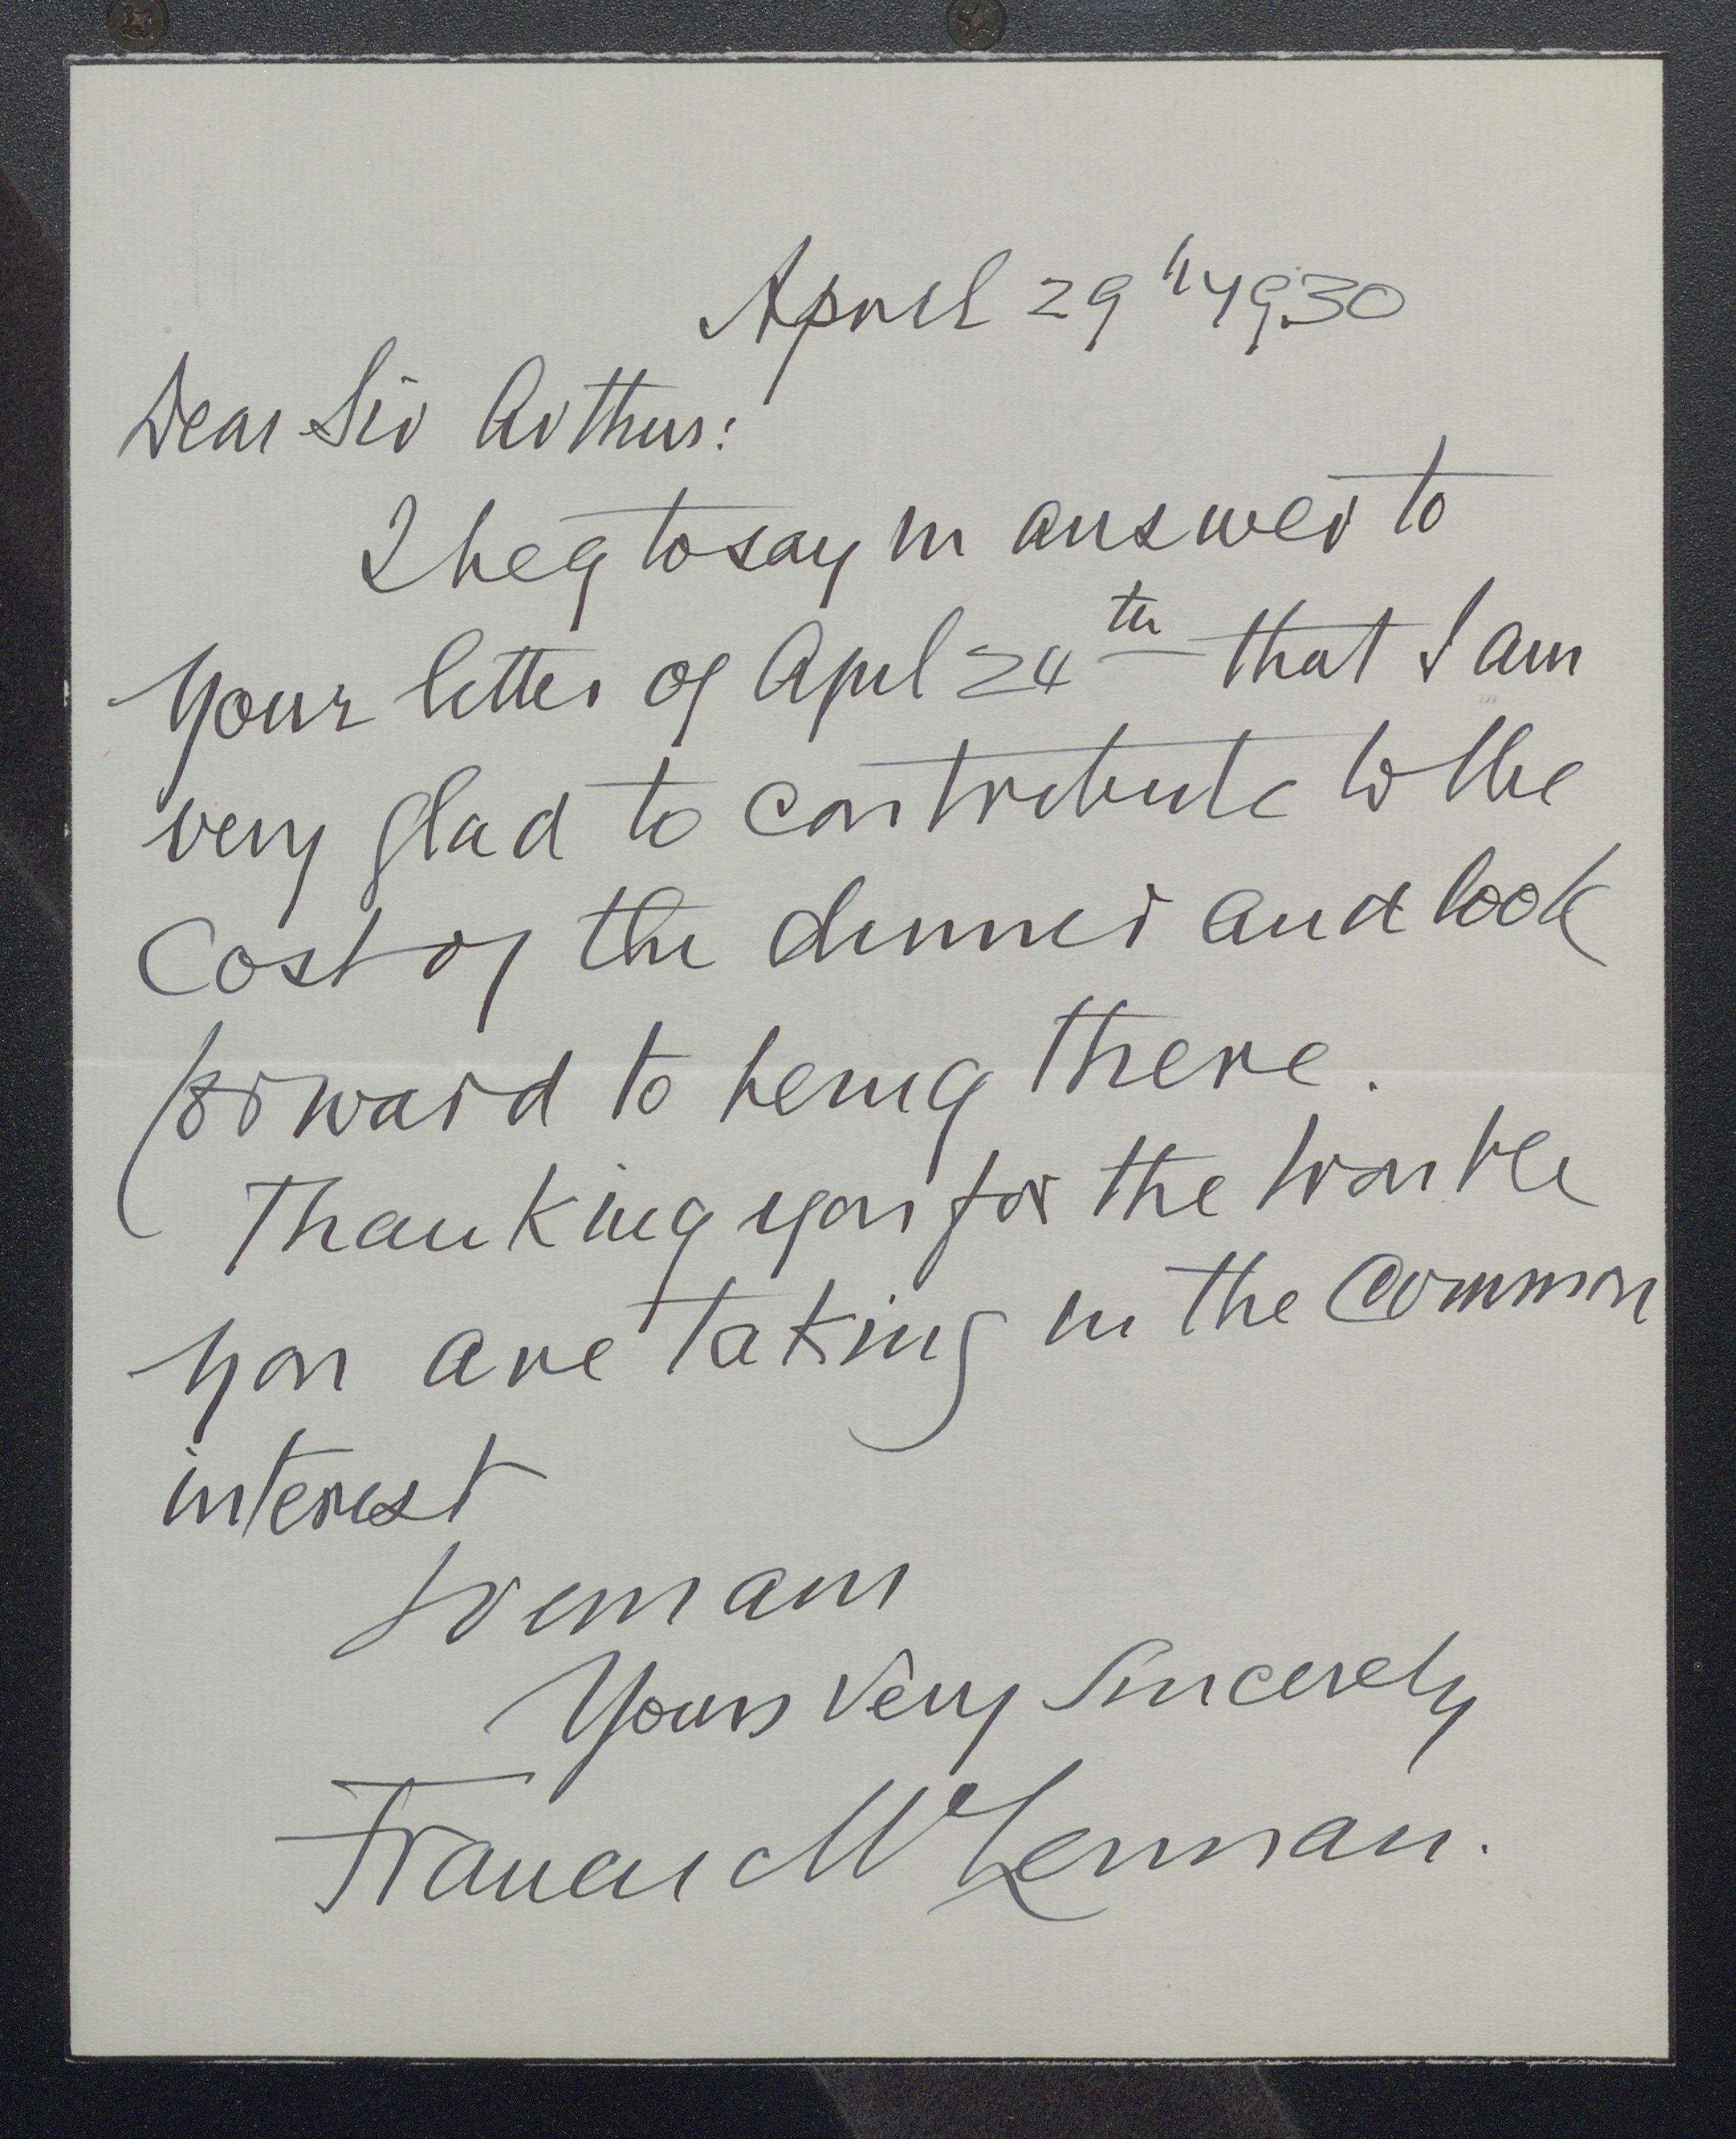 April 29th 1930
Dear Sir Arthur:
I beg to say in answer to
your letter of April 24th that I am
very glad to contribute to the
cost of the dinner and look
forward to being there.
Thanking you for the trouble
you are taking in the common
interest
I remain
Yours very sincerely
Francis McLennan.